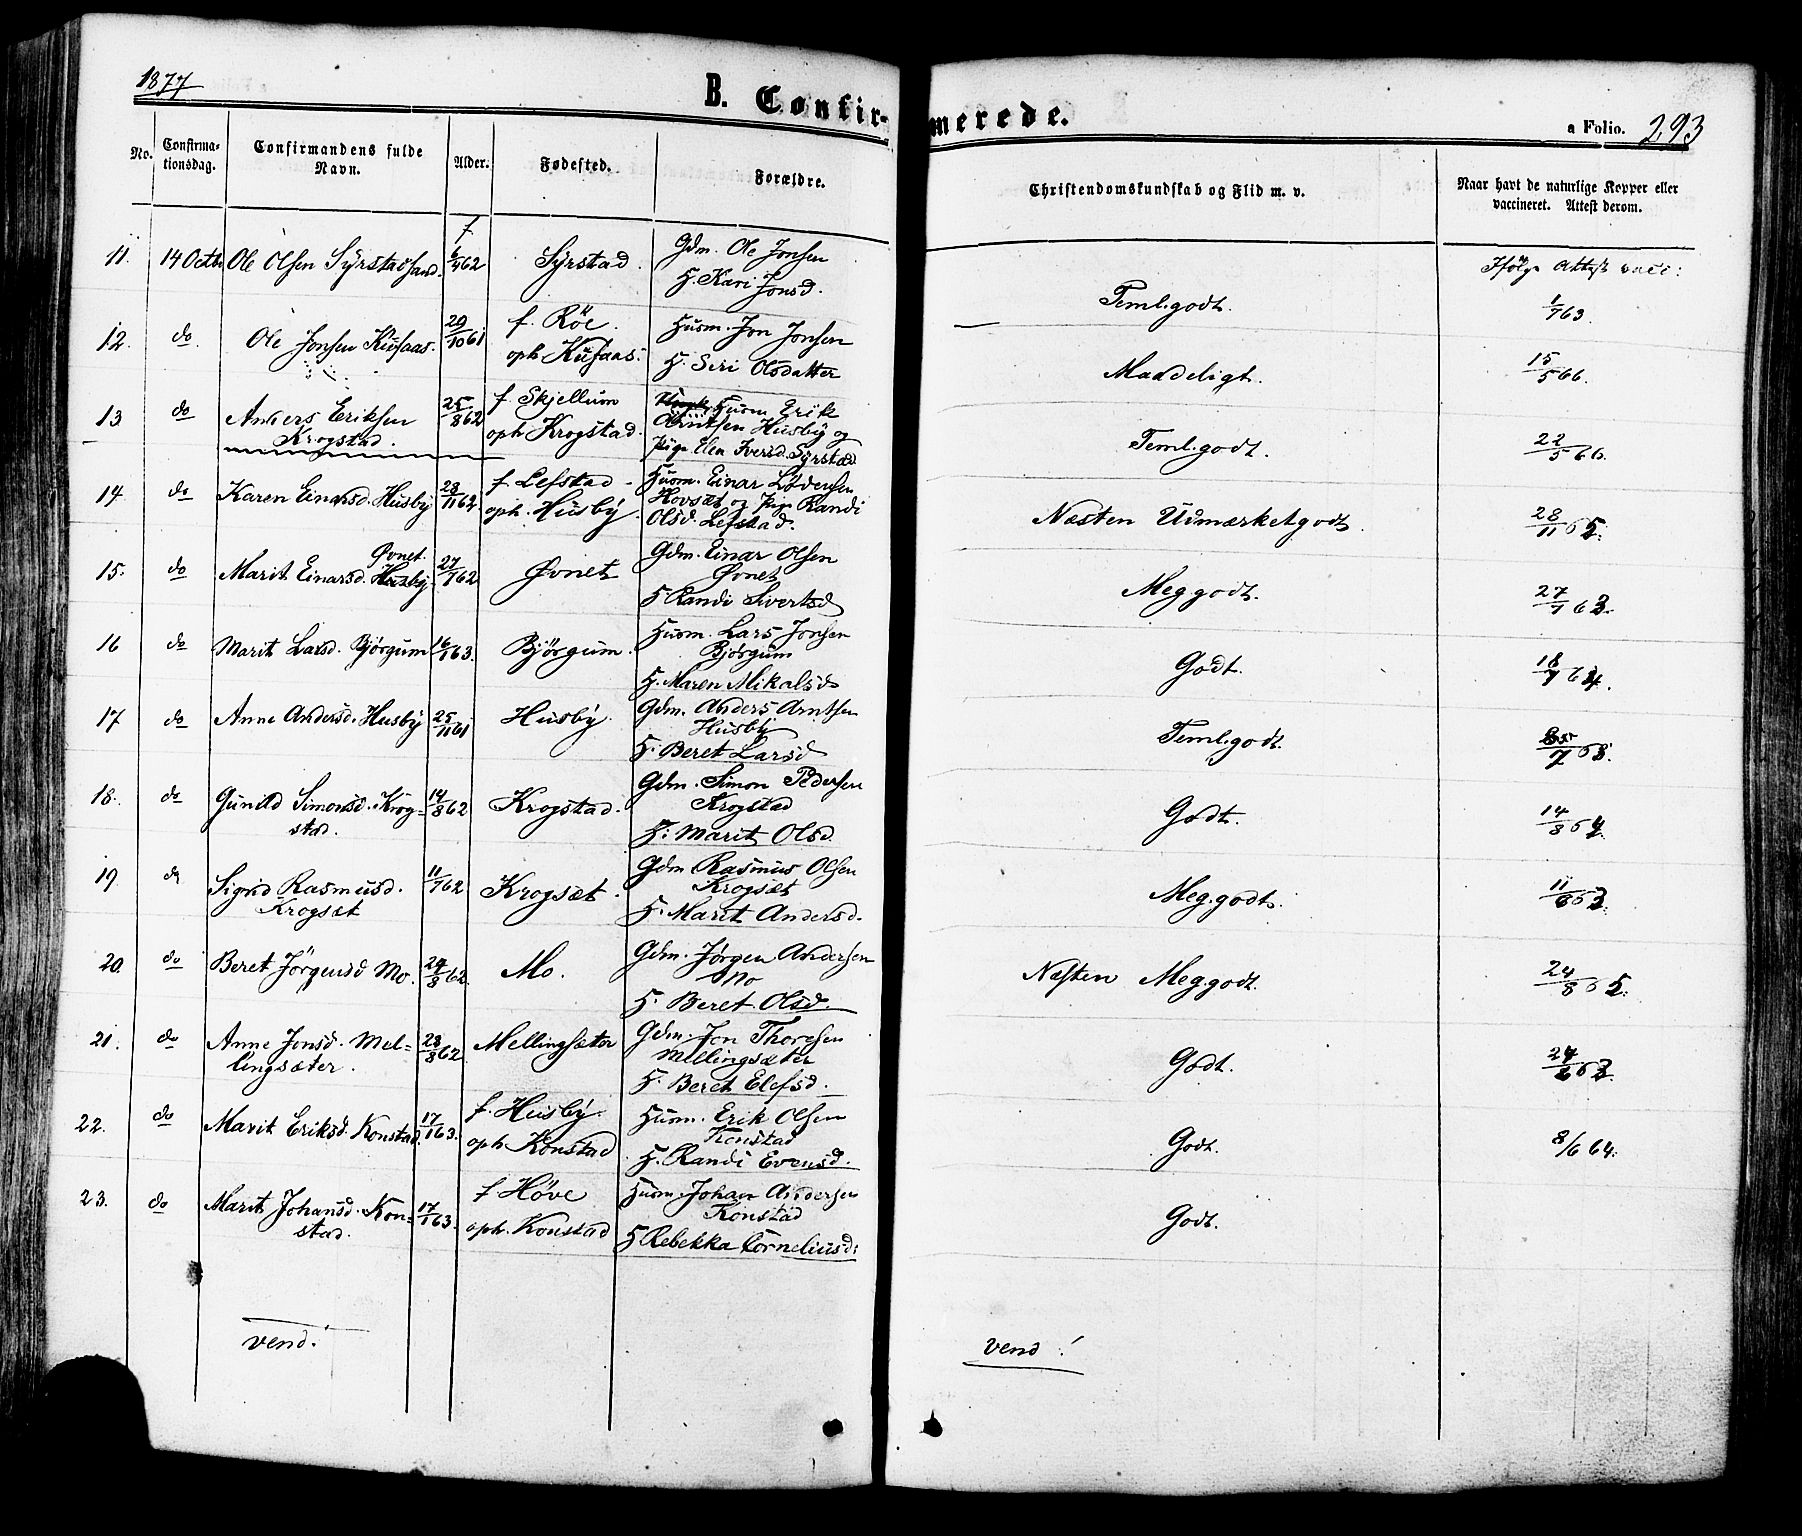 1877
B. Confir-
merede.
a Folio. 293
No.
Confirma-
tionsdag.
Confirmandens fulde
Navn.
Alder.
Fødested.
Forældre.
Christendomskundskab og Flid m. v.
Naar havt de naturlige Kopper eller
vaccineret. Attest derom.
11. 14 Octb Ole Olsen Syrstadsand. 62 Syrstad. Gdm. Ole Jonsen
H. Kari Jonsd.
Teml. godt.
Ifølge Attest vacc:
1/7 63.
12. do. Ole Jonsen Kusaas. 29/10 61 f. Röe.
oph. Kusaas.
Husm. Jon Jonsen
H. Siri Olsdatter
Maadeligt. 15/5 66.
13 do Anders Eriksen
Krogstad.
25/8 62 f Skjellum
oph Krogstad.
Husm Erik
Arntsen Husby og
Pige Elen Iversd. Syrstad
Teml. godt. 22/5 66.
14 do Karen Einarsd. Husby 28/11 62. f Lefstad
oph. Husby.
Husm. Einar
Hovsæt og Pige Randi
Olsd. Lefstad.
Næsten Udmærket godt. 28/11 65.
15. do Marit Einarsd. Husby
Øvnet.
27/7 62 Øvnet Gdm. Einar Olsen
Øvnet
H Randi Sivertsd
Meg. godt. 27/7 63.
16 do Marit Larsd. Bjørgum 16/1 63. Bjørgum. Husm. Lars Jonsen
Bjørgum
H. Maren Mikalsd
Godt. 18/7 64.
17 do Anne Andersd. Husby 25/11 61 Husby. Gdm. Anders Arntsen
Husby
H. Beret Larsd
Teml. godt. 7 63.
18. do Gunild Simonsd. Krog-
stad.
14/8 62 Krogstad. Gdm. Simon Pedersen
Krogstad
H: Marit Olsd.
Godt. 14/8 64.
19 do Sigrid Rasmusd.
Krogsæt
11/7 62 Krogsæt. Gdm Rasmus Olsen
Krogsæt
H. Marit Andersd.
Meg. godt. 11/8 63.
20. do Beret Jörgensd Mo. 24/8 62. Mo. Gdm. Jørgen Andersen
Mo
H. Beret Olsd.
Næsten Meg. godt. 24/8 65.
21. do Anne Jonsd. Mel-
lingsæter.
28/8 62. Mellingsæter Gdm. Jon Thoresen
Mellingsæter
H. Beret Elefsd.
Godt. 63.
22. do Marit Eriksd. Konstad. 17/1 63. f. Husby.
oph. Konstad
Husm. Erik Olsen
Konstad
H. Randi Evensd.
Godt. 8/6 64.
23. do Marit Johansd. Kon-
stad.
17/1 63. f Höve
oph. Konstad
Husm. Johan Andersen
Konstad
H Rebekka Corneliusd:
Godt.
vend.
vend!